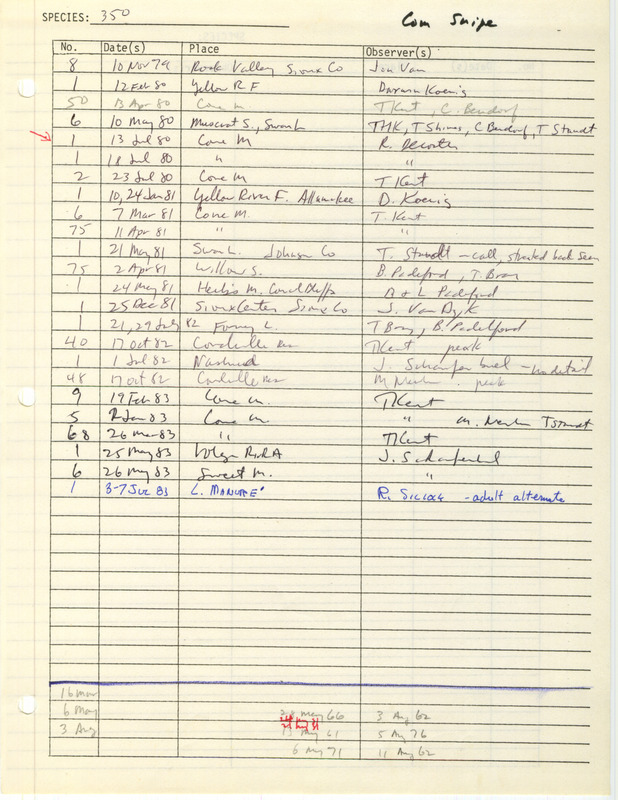 SPECIES: 350 Com Snipe
No. Date(s) Place Observer(s)
8 10 Nov 79 Rock Valley Sioux Co Jon Van
1 12 Feb 80 Yellow R F Darwin Koenig
50 13 Apr 80 Cone M. T Kent, C. Bendorf
6 10 May 80 Muscat S., Swan L THK, T Shires, C Bendorf, T Staudt
1 13 Jul 80 Cone M R. DeCoster
1 18 Jul 80 " "
2 23 Jul 80 Cone M T Kent
1 10, 24 Jan 81 Yellow River F. Allamakee D. Koenig
6 7 Mar 81 Cone M. T. Kent
75 11 Apr 81 " "
1 21 May 81 Swan L. Johnson Co T. Staudt - call, streaked back seen
75 2 Apr 81 Willow S. B. Padelford, T. Bray
1 24 May 81 Herb's M. Council Bluffs B & L Padelford
1 25 Dec 81 Sioux Center Sioux Co J. Van Dyk
1 21, 29 July 82 Forney L. T Bray, B. Padelford
40 17 Oct 82 Coralville Res T Kent peak
1 1 Jul 82 Nashua J. Schaufenbuel - no detail
48 17 Oct 82 Coralville Res M Newlon. peak
9 19 Feb 83 Cone M. T Kent
5 2 Jan 83 Cone M. " M. Newlon T Staudt
68 26 Mar 83 " T Kent
1 25 May 83 Volga R. RA J. Schaufenbuel
6 26 May 83 Sweet M. "
1 3-7 Jul 83 L. Manawa R. Silcock - adult alternate
16 Mar
6 May 28 May 66 3 Aug 62
24 May 81
3 Aug 13 May 61 5 Aug 76
6 May 71 11 Aug 62